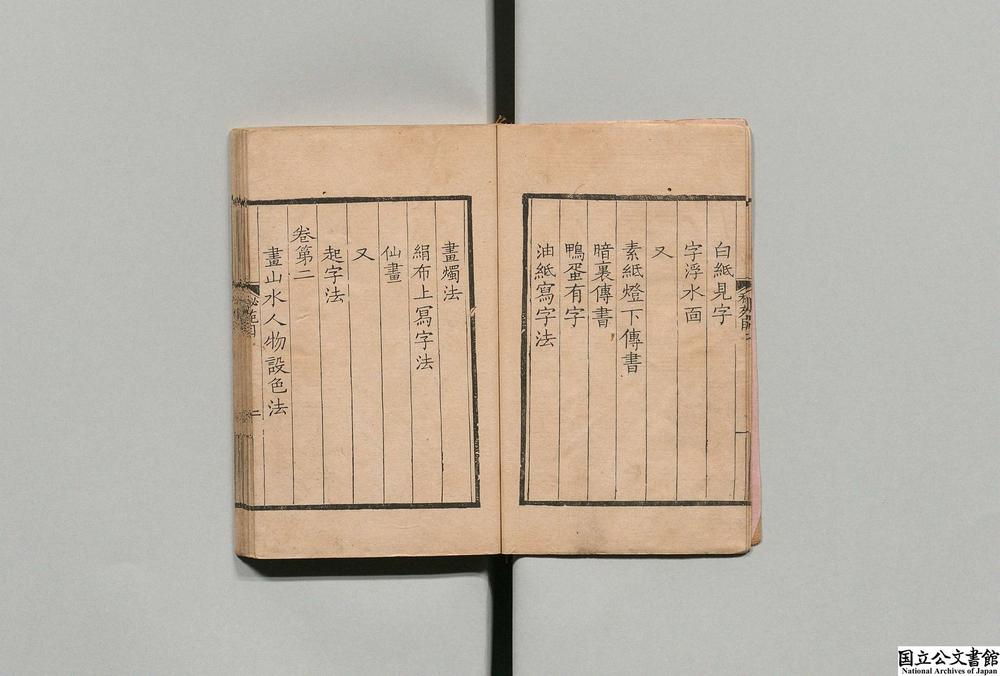 白紙見字
字浮水面
又
素紙燈下傳書
暗裏傳書
鴨蛋有字
油紙寫字法
畫燭法
絹布上冩字法
仙畫
又
起字法
卷第二
畫山水人物設色法
二
国立公文書館
National Archives of Japan